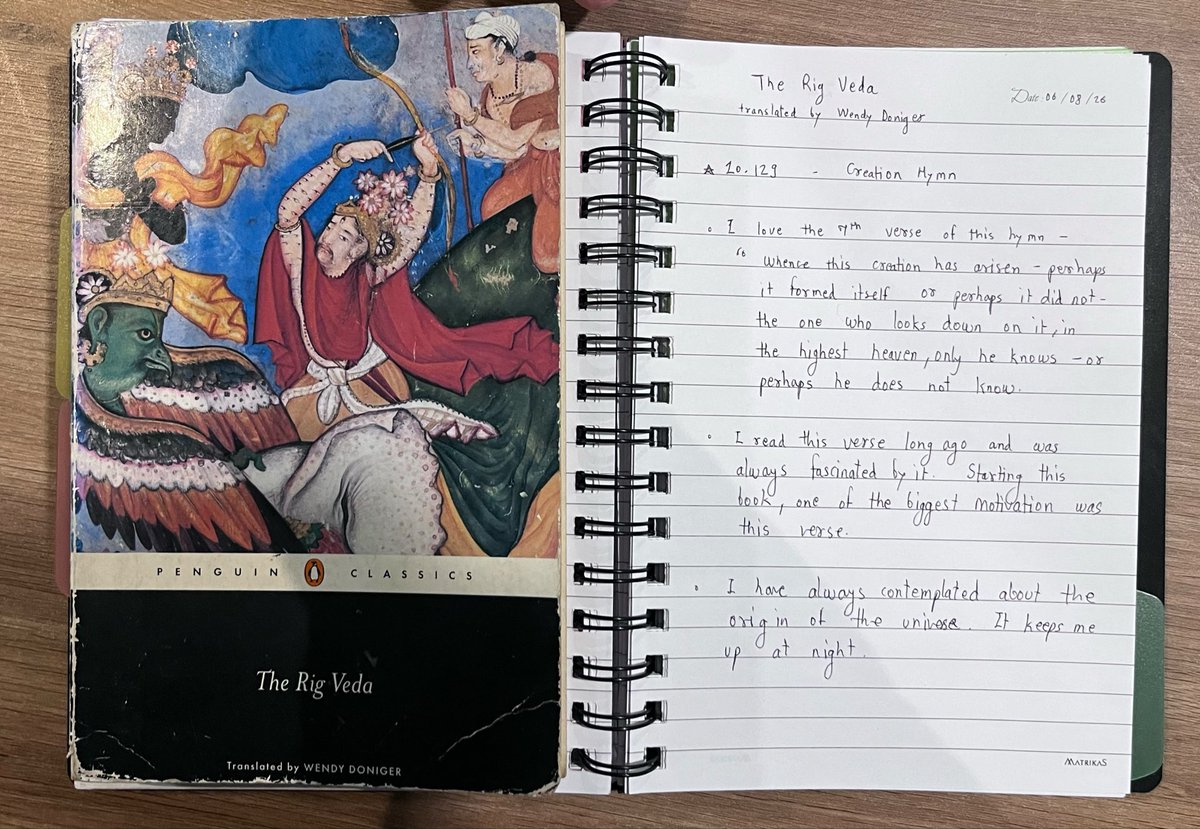 PENGUIN CLASSICS
The Rig Veda
Translated by WENDY DONIGER
The Rig Veda
Date 06/08/26
translated by Wendy Doniger
☆ 10.129 - Creation Hymn
• I love the 7th verse of this hymn -
“ Whence this creation has arisen - perhaps
it formed itself or perhaps it did not -
the one who looks down on it, in
the highest heaven, only he knows - or
perhaps he does not know.
• I read this verse long ago and was
always fascinated by it. Starting this
book, one of the biggest motivation was
this verse.
• I have always contemplated about the
origin of the universe. It keeps me
up at night.
MATRIKAS